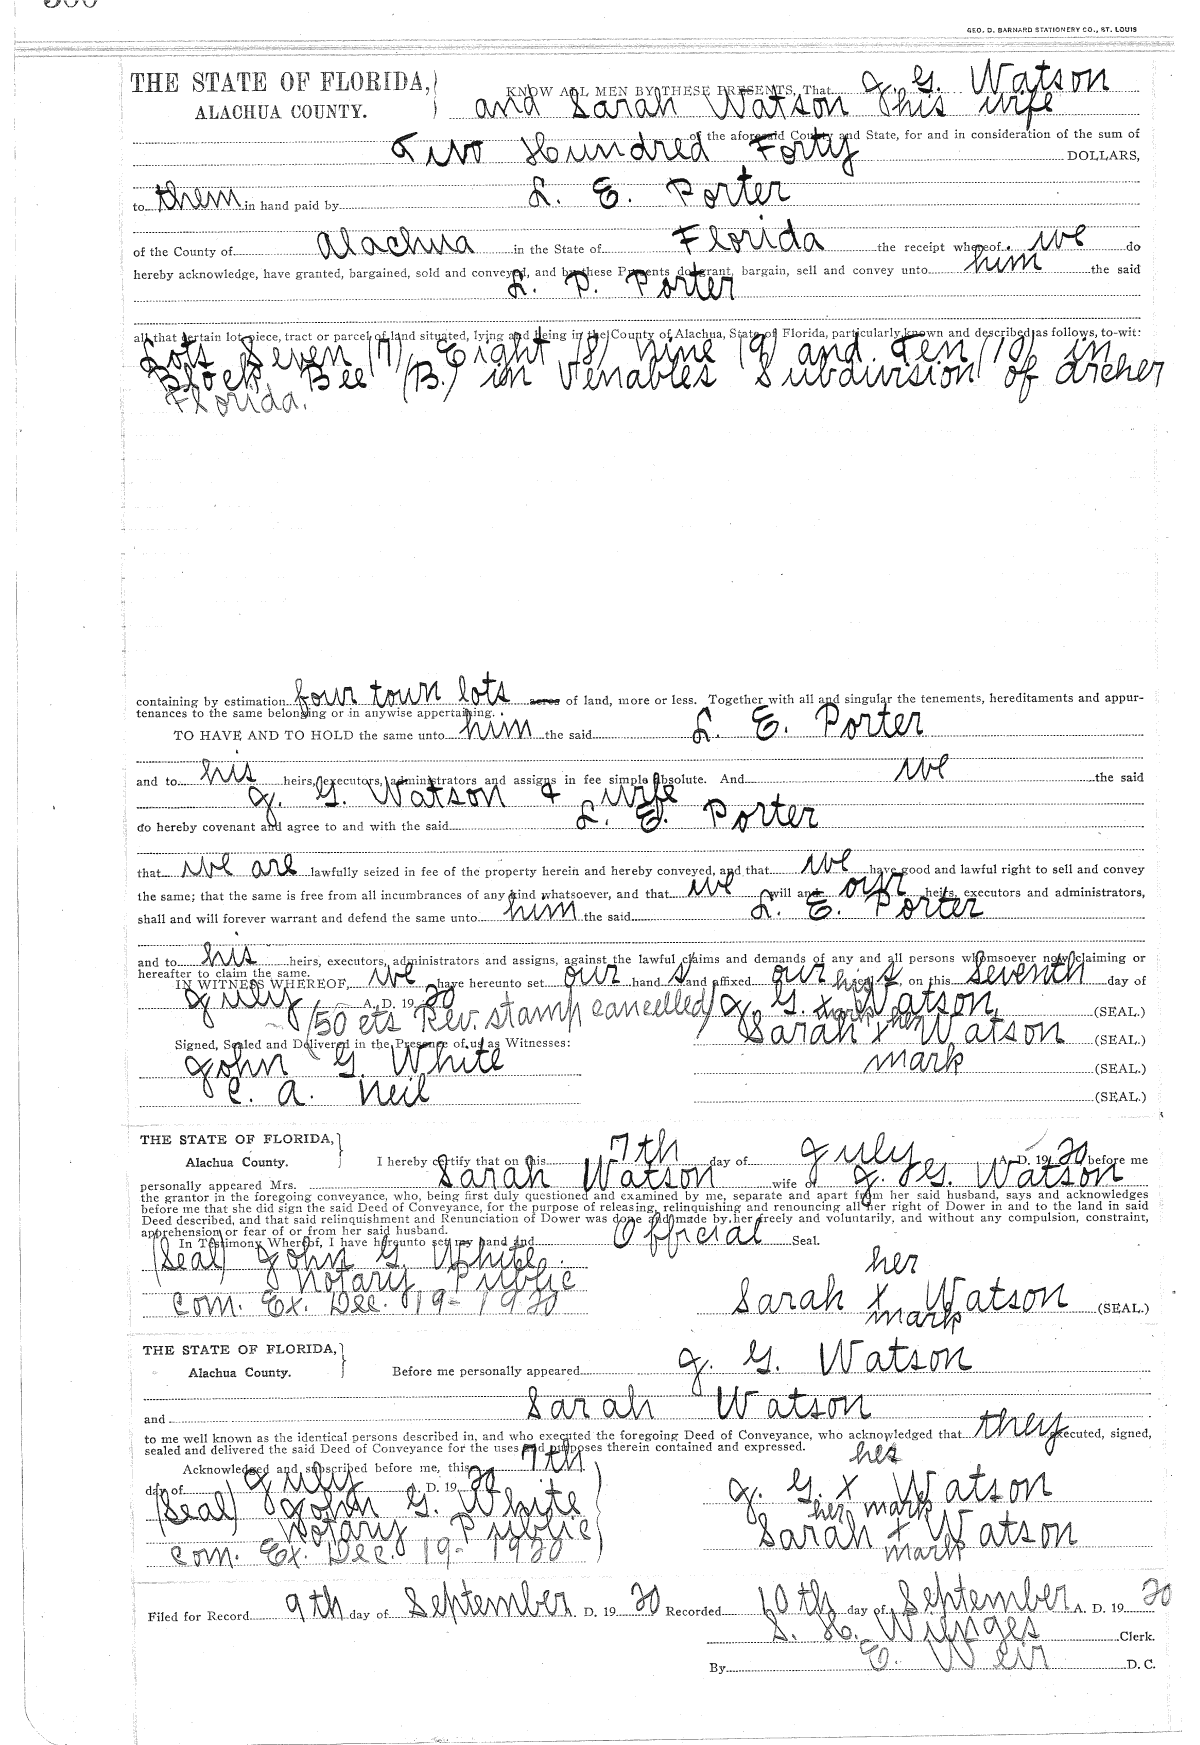 GEO. D. BARNARD STATIONERY CO., ST. LOUIS
THE STATE OF FLORIDA,
ALACHUA COUNTY.
KNOW ALL MEN BY THESE PRESENTS, That J. G. Watson
and Sarah Watson his wife
of the aforesaid County and State, for and in consideration of the sum of
Two Hundred Forty DOLLARS,
to them in hand paid by L. E. Porter
of the County of Alachua in the State of Florida the receipt whereof we do
hereby acknowledge, have granted, bargained, sold and conveyed, and by these Presents do grant, bargain, sell and convey unto him the said
L. P. Porter
all that certain lot, piece, tract or parcel of land situated, lying and being in the County of Alachua, State of Florida, particularly known and described as follows, to-wit:
Lots Seven (7) Eight (8) nine (9) and Ten (10) in
Block Bee (B.) in Venables Subdivision of Archer
Florida.
containing by estimation four town lots acres of land, more or less. Together with all and singular the tenements, hereditaments and appur-
tenances to the same belonging or in anywise appertaining.
TO HAVE AND TO HOLD the same unto him the said L. E. Porter
and to his heirs, executors, administrators and assigns in fee simple absolute. And we the said
J. G. Watson & wife
do hereby covenant and agree to and with the said L. E. Porter
that we are lawfully seized in fee of the property herein and hereby conveyed, and that we have good and lawful right to sell and convey
the same; that the same is free from all incumbrances of any kind whatsoever, and that we will and our heirs, executors and administrators,
shall and will forever warrant and defend the same unto him the said L. E. Porter
and to his heirs, executors, administrators and assigns, against the lawful claims and demands of any and all persons whomsoever now claiming or
hereafter to claim the same.
IN WITNESS WHEREOF, we have hereunto set our hands and affixed our seals, on this Seventh day of
July A. D. 1920 his
(50 cts Rev. stamp cancelled) J. G. x Watson (SEAL.)
mark her
Sarah x Watson (SEAL.)
Signed, Sealed and Delivered in the Presence of us as Witnesses:
John G. White mark (SEAL.)
C. A. Neil (SEAL.)
THE STATE OF FLORIDA,
Alachua County.
I hereby certify that on this 7th day of July A. D. 1920 before me
personally appeared Mrs. Sarah Watson wife of J. G. Watson
the grantor in the foregoing conveyance, who, being first duly questioned and examined by me, separate and apart from her said husband, says and acknowledges
before me that she did sign the said Deed of Conveyance, for the purpose of releasing, relinquishing and renouncing all her right of Dower in and to the land in said
Deed described, and that said relinquishment and Renunciation of Dower was done and made by her freely and voluntarily, and without any compulsion, constraint,
apprehension or fear of or from her said husband.
In Testimony Whereof, I have hereunto set my hand and Official Seal.
(Seal) John G. White her
Notary Public
Com. Ex. Dec. 19-1920 Sarah x Watson (SEAL.)
mark
THE STATE OF FLORIDA,
Alachua County.
Before me personally appeared J. G. Watson
and Sarah Watson
to me well known as the identical persons described in, and who executed the foregoing Deed of Conveyance, who acknowledged that they executed, signed,
sealed and delivered the said Deed of Conveyance for the uses and purposes therein contained and expressed.
Acknowledged and subscribed before me, this 7th his
day of July A. D. 1920 J. G. x Watson
(Seal) John G. White her mark
Notary Public Sarah x Watson
Com. Ex. Dec. 19-1920 mark
Filed for Record 9th day of September A. D. 1920 Recorded 10th day of September A. D. 1920
S. H. Wienges Clerk.
By E. Weir D. C.